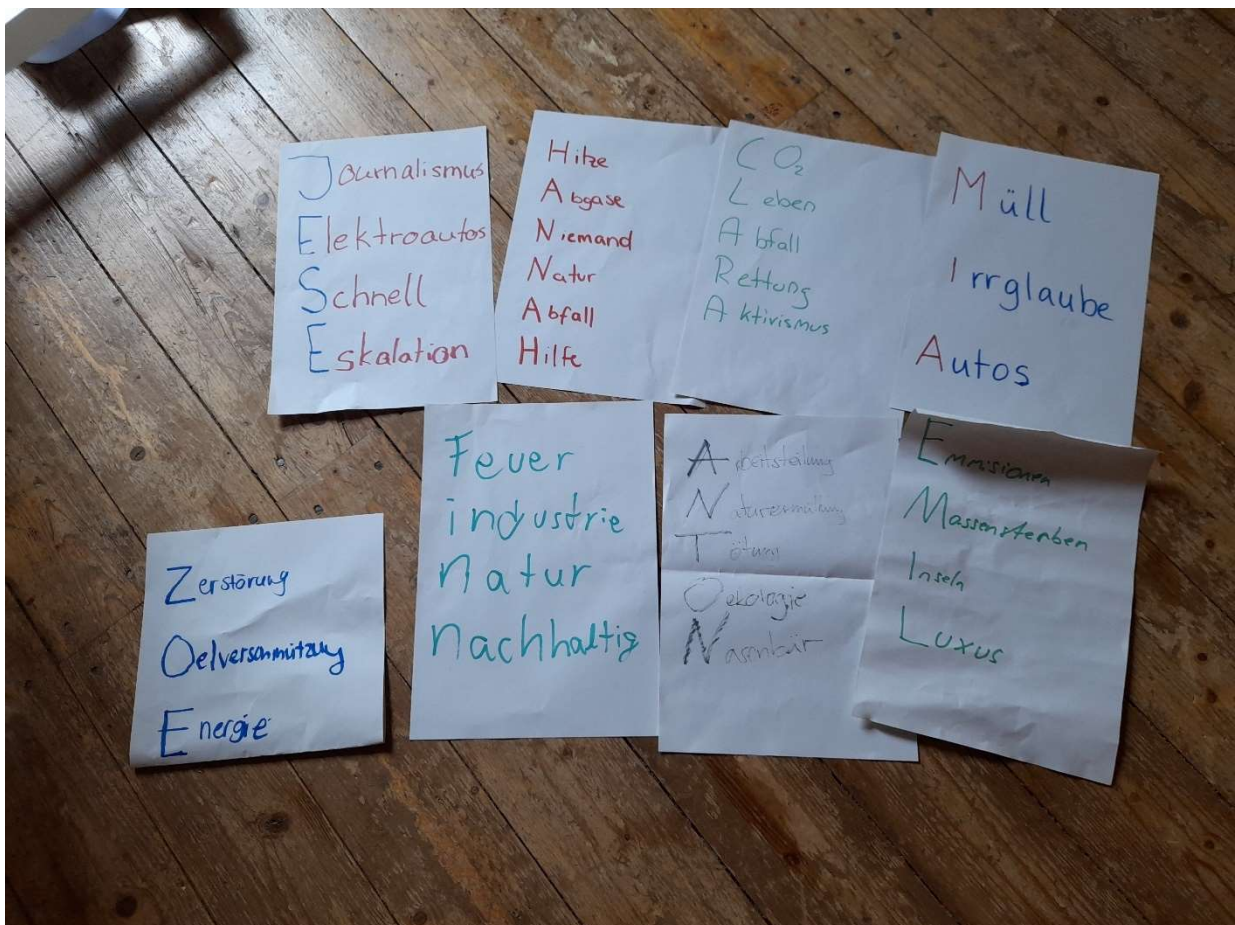 Journalismus
Elektroautos
Schnell
Eskalation
Hitze
Abgase
Niemand
Natur
Abfall
Hilfe
CO₂
Leben
Abfall
Rettung
Aktivismus
Müll
Irrglaube
Autos
Zerstörung
Oelverschmutzung
Energie
Feuer
industrie
natur
nachhaltig
Arbeitsteilung
Tötung
Oekologie
Nasenbär
Emmisionen
Massensterben
Inseln
Luxus